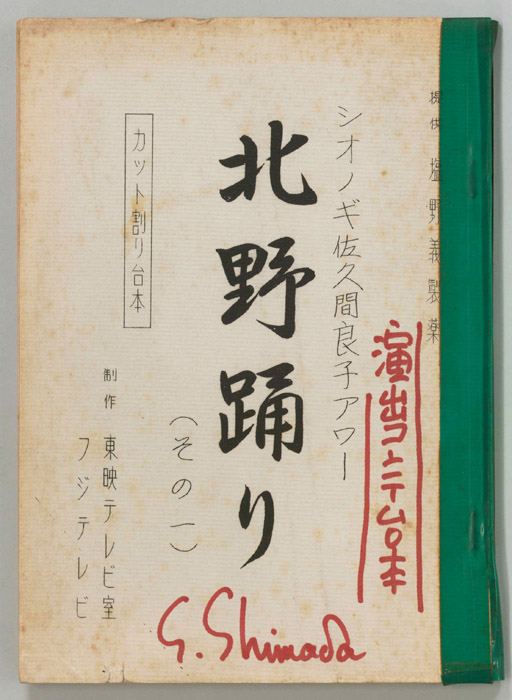 提供 塩野義製薬
演出コンテ台本
シオノギ佐久間良子アワー
北野踊り
(その一)
カット割り台本
制作 東映テレビ室
フジテレビ
S. Shimada